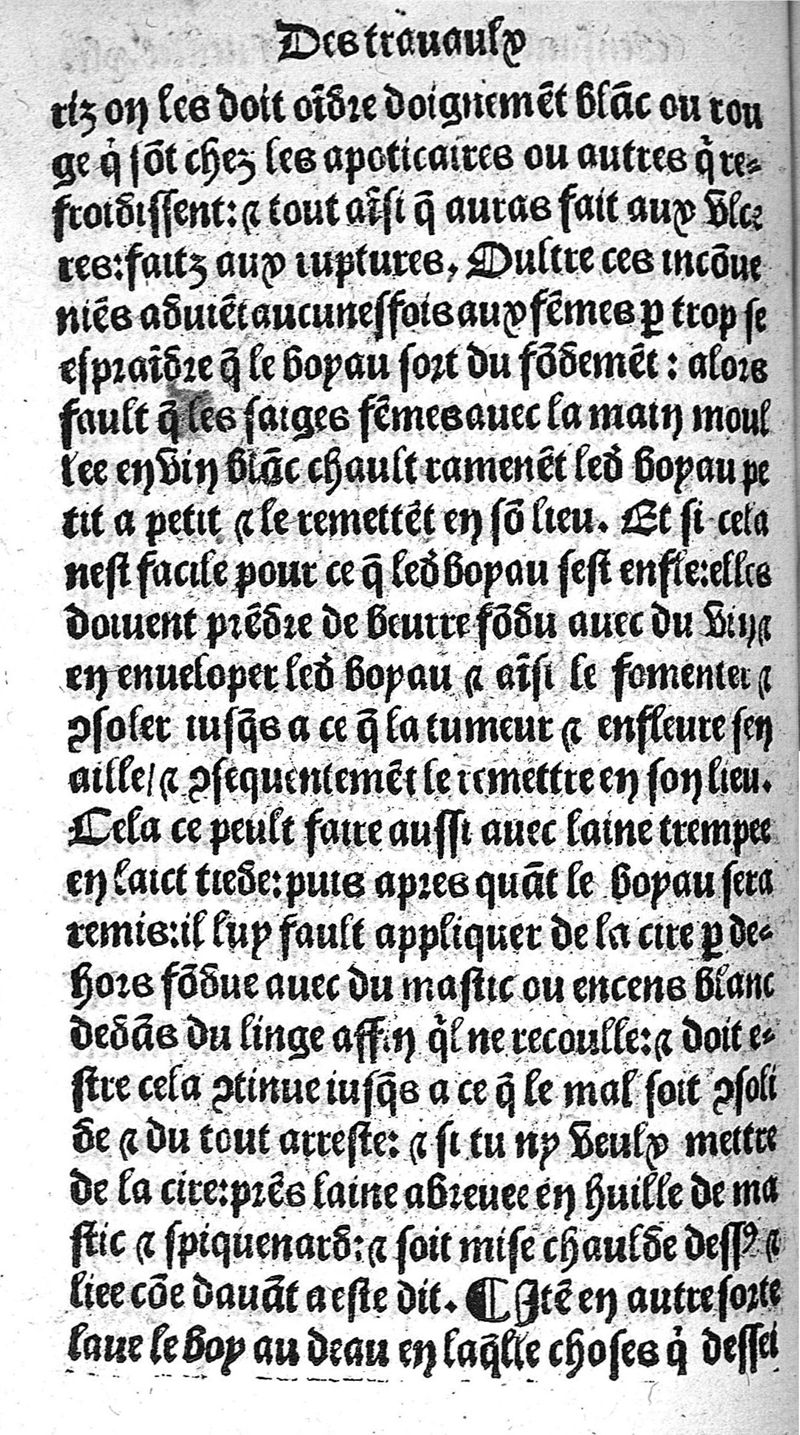 Des trauaulx
riz on les doit oīdre doignemēt blāc ou rou
ge q̇ sōt chez les apoticaires ou autres q̇ re-
froidissent: ⁊ tout aīsi q̄ auras fait aux vlce
res: faitz aux ruptures. Oultre ces incōue
niēs aduiēt aucunesfois aux fēmes ꝑ trop se
espraīdre q̄ le boyau sort du fōdemēt: alors
fault q̄ les saiges fēmes auec la main moul
lee en vin blāc chault ramenēt led̕ boyau pe
tit a petit ⁊ le remettēt en sō lieu. Et si cela
nest facile pour ce q̄ led̕ boyau sest enfle: elles
doiuent prēdre de beurre fōdu auec du vin ⁊
en enueloper led̕ boyau ⁊ aīsi le fomenter ⁊
ꝯsoler iusq̄s a ce q̄ la tumeur ⁊ enfleure sen
aille / ⁊ ꝯsequentemēt le remettre en son lieu.
Cela ce peult faire aussi auec laine trempee
en laict tiede: puis apres quāt le boyau sera
remis: il luy fault appliquer de la cire ꝑ de-
hors fōdue auec du mastic ou encens blanc
dedās du linge affin q̇l ne recoulle: ⁊ doit e-
stre cela ꝯtinue iusq̄s a ce q̄ le mal soit ꝯsoli
de ⁊ du tout arreste: ⁊ si tu ny veulx mettre
de la cire: prēs laine abreuee en huille de ma
stic ⁊ spiquenard: ⁊ soit mise chaulde dessꝰ ⁊
liee cōe dauāt a este dit. ¶ Itē en autre sorte
laue le boy au deau en laq̄lle choses q̇ dessei